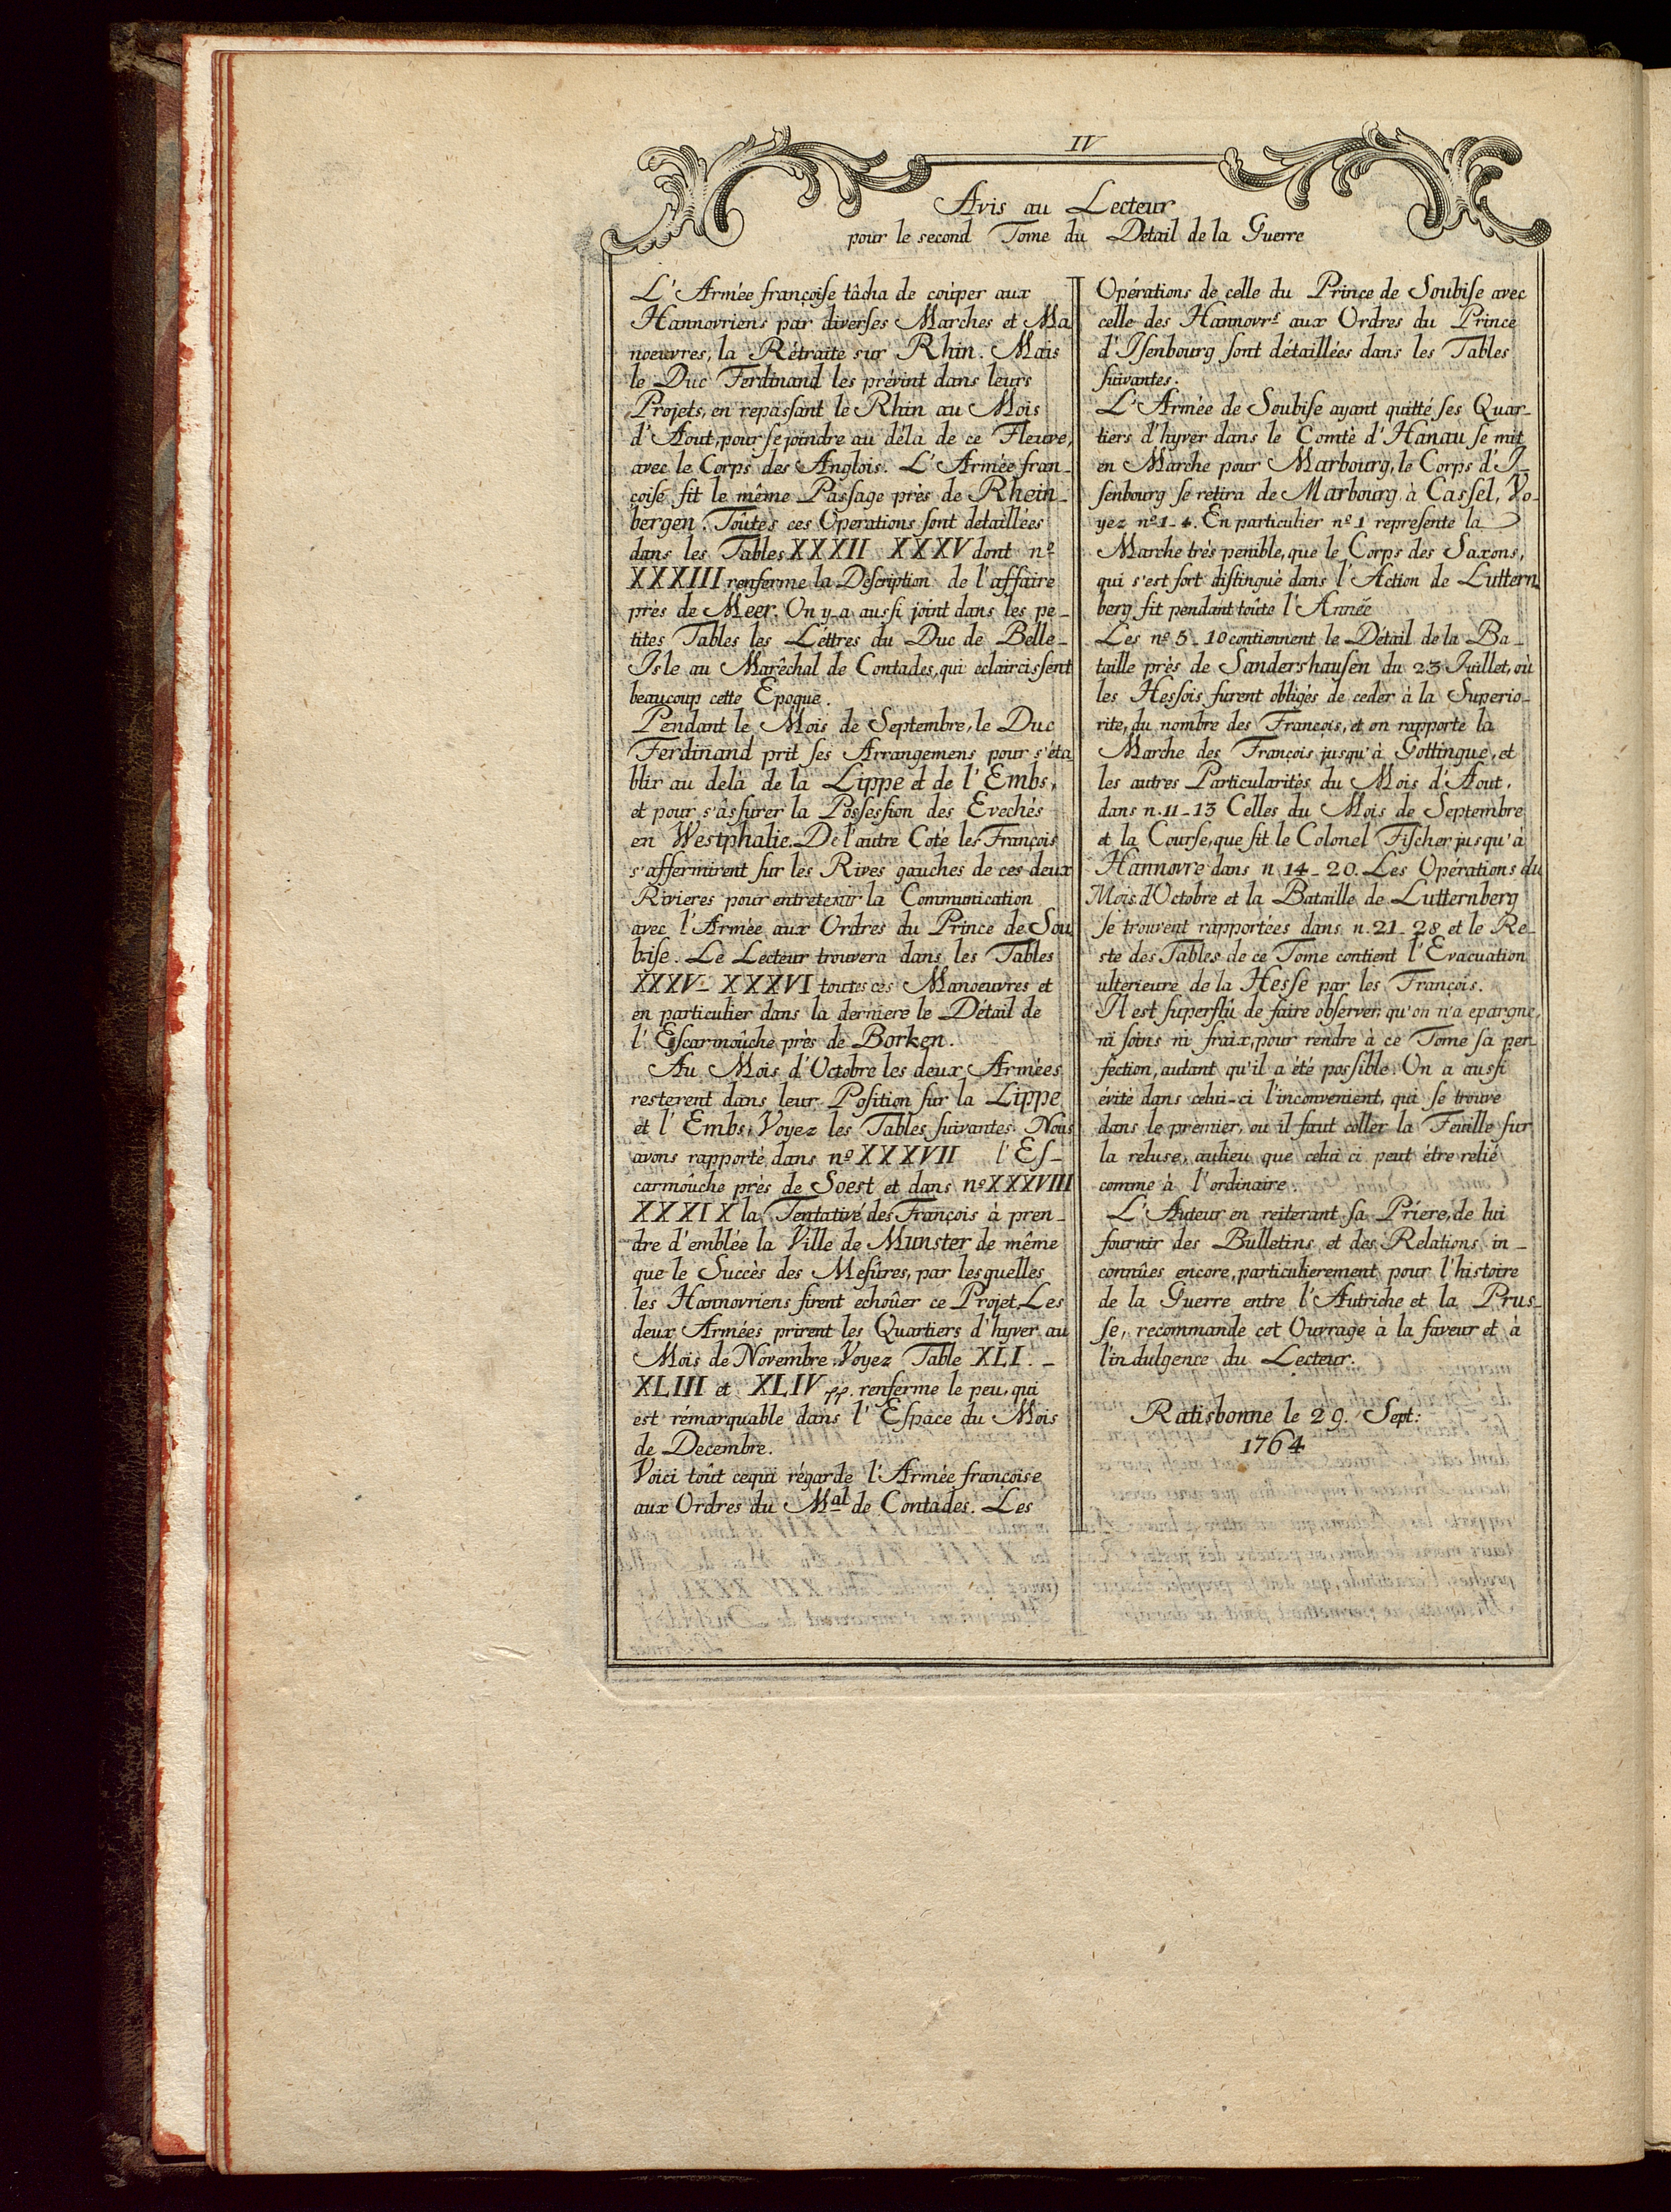 IV
Avis au Lecteur
pour le second Tome du Detail de la Guerre
L'Armée françoiſe tâcha de coúper aux
Hannovriens par diverſes Marches et Ma
noeuvres, la Rétraite sur Rhin. Mais
le Duc Ferdinand les prévint dans leurs
Projets, en repaſsant le Rhin au Mois
d'Aout, pour ſe joindre au déla de ce Fleuve,
avec le Corps des Anglois. L'Armée fran-
çoiſe fit le même Paſsage près de Rhein-
bergen. Toûtes ces Operations ſont detaillées
dans les Tables XXXII XXXV dont nº
XXXIII renferme la Deſcription de l'affaire
près de Meer. On y-a auſsi joint dans les pe-
tites Tables les Lettres du Duc de Belle-
Isle au Marêchal de Contades, qui eclaircisſent
beaucoup cette Epoque.
Pendant le Mois de Septembre, le Duc
Ferdinand prit ſes Arrangemens pour s'éta
blir au delà de la Lippe et de l'Embs,
et pour s'âſsurer la Poſseſsion des Evechés
en Westphalie. De l'autre Coté les François
s'affermirent ſur les Rives gauches de ces deux
Rivieres pour entretenir la Communication
avec l'Armée aux Ordres du Prince de Sou
biſe. Le Lecteur trouvera dans les Tables
XXXV- XXXVI toutes ces Manoeuvres et
en particulier dans la derniere le Détail de
l'Eſcarmoûche près de Borken.
Au Mois d'Octobre les deux Armées
resterent dans leur Poſition ſur la Lippe
et l'Embs, Voyez les Tables ſuivantes. Nous
avons rapporté dans nº XXXVII l'Eſ-
carmoûche près de Soest et dans nº XXXVIII
XXXIX la Tentative des François à pren-
dre d'emblée la Ville de Munster de même
que le Succès des Meſûres, par lesquelles
les Hannovriens firent echoûer ce Projet, Les
deux Armées prirent les Quartiers d'hyver au
Mois de Novembre. Voyez Table XLI. -
XLIII et XLIV pp. renferme le peu, qui
est rémarquable dans l'Eſpace du Mois
de Decembre.
Voici toût cequi régarde l'Armée françoise
aux Ordres du Mal de Contades. Les
Opérations de celle du Prince de Soubiſe avec
celle des Hannovrs aux Ordres du Prince
d'Iſenbourg ſont détaillées dans les Tables
ſuivantes.
L'Armée de Soubiſe ayant quitté ſes Quar-
tiers d'hyver dans le Comtè d'Hanau ſe mit
en Marche pour Marbourg, le Corps d'I-
ſenbourg ſe retira de Marbourg à Caſsel, Vo-
yez nº 1-4. En particulier nº 1 repreſente la
Marche très penible, que le Corps des Saxons,
qui s'est fort diſtingué dans l'Action de Luttern
berg fit pendant toûte l'Année
Les nº 5-10 contiennent le Détail de la Ba-
taille près de Sandershauſen du 23 Juillet, où
les Heſsois furent obligés de ceder à la Superio-
rite, du nombre des François, et on rapporte la
Marche des François jusqu'à Gottingue, et
les autres Particularités du Mois d'Aout,
dans n. 11-13 Celles du Mois de Septembre
et la Courſe, que fit le Colonel Fiſcher jusqu'à
Hannovre dans n 14-20. Les Opérations du
Mois d'Octobre et la Bataille de Lutternberg
ſe trouvent rapportées dans n. 21-28 et le Re-
ste des Tables de ce Tome contient l'Evacuation
ulterieure de la Heſse par les François.
Il est ſuperflû de faire obſerver, qu'on n'a epargne,
ni ſoins ni fraix, pour rendre à ce Tome ſa per-
fection, autant qu'il a été poſsible. On a auſsi
évité dans celui-ci l'inconvenient, qui ſe trouve
dans le premier, ou il faut coller la Feuille ſur
la reluse, aulieu que celui ci peut étre relié
comme à l'ordinaire.
L'Auteur en reiterant ſa Prière, de lui
fournir des Bulletins et des Relations in-
connûes encore, particulierement pour l'histoire
de la Guerre entre l'Autriche et la Prus-
ſe, recommande cet Ouvrage à la faveur et à
l'indulgence du Lecteur.
Ratisbonne le 29. Sept:
1764